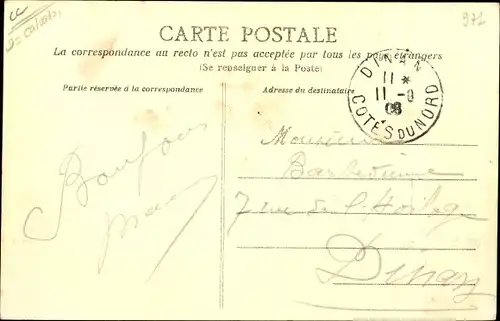 CARTE POSTALE
La correspondance au recto n'est pas acceptée par tous les pays étrangers
(Se renseigner à la Poste)
Partie réservée à la correspondance
Adresse du destinataire
DINAN
11 *
11 - 8
08
COTES DU NORD
971
Bonjour
Monsieur
Barbedienne
7 rue de l'Horloge
Dinan